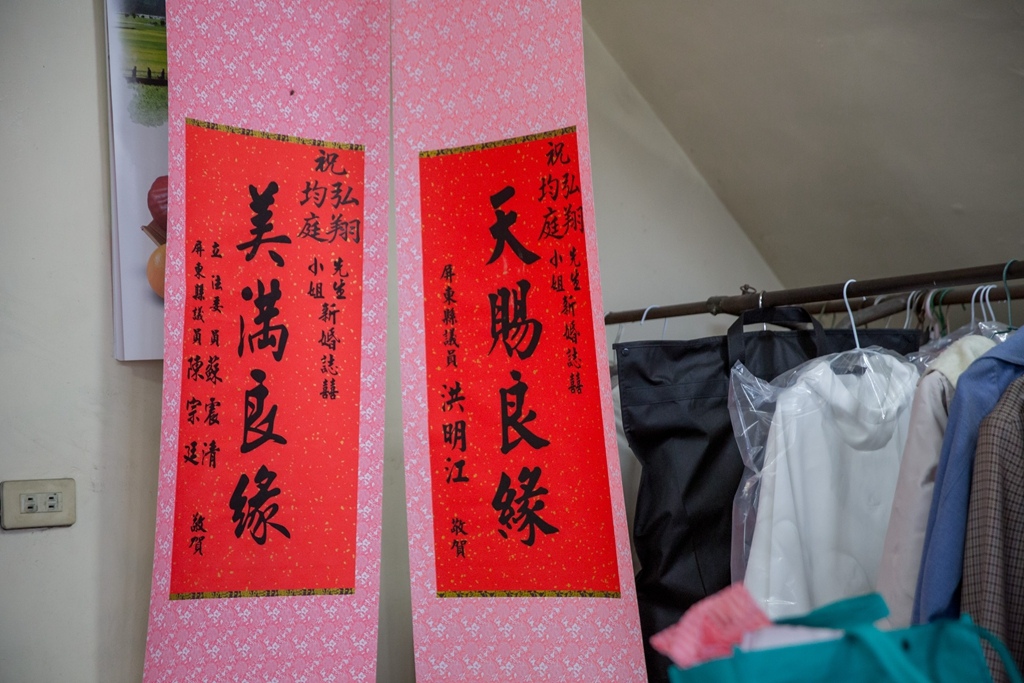 祝
弘翔先生新婚誌囍
均庭小姐
天賜良緣
屏東縣議員 洪明江 敬賀
祝
弘翔先生新婚誌囍
均庭小姐
美滿良緣
立法委員 蘇震清
屏東縣議員 陳宗廷 敬賀